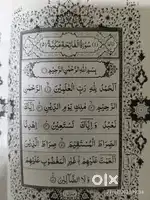 سُورَةُ الْفَاتِحَةِ مَكِّيَّةٌ
بِسْمِ اللهِ الرَّحْمٰنِ الرَّحِيْمِ
اَلْحَمْدُ لِلّٰهِ رَبِّ الْعٰلَمِيْنَ ۝ الرَّحْمٰنِ
الرَّحِيْمِ ۝ مٰلِكِ يَوْمِ الدِّيْنِ ۝ اِيَّاكَ
نَعْبُدُ وَاِيَّاكَ نَسْتَعِيْنُ ۝ اِهْدِنَا
الصِّرَاطَ الْمُسْتَقِيْمَ ۝ صِرَاطَ الَّذِيْنَ
اَنْعَمْتَ عَلَيْهِمْ ۝ غَيْرِ الْمَغْضُوْبِ عَلَيْهِمْ
وَلَا الضَّآلِّيْنَ ۝
OLX